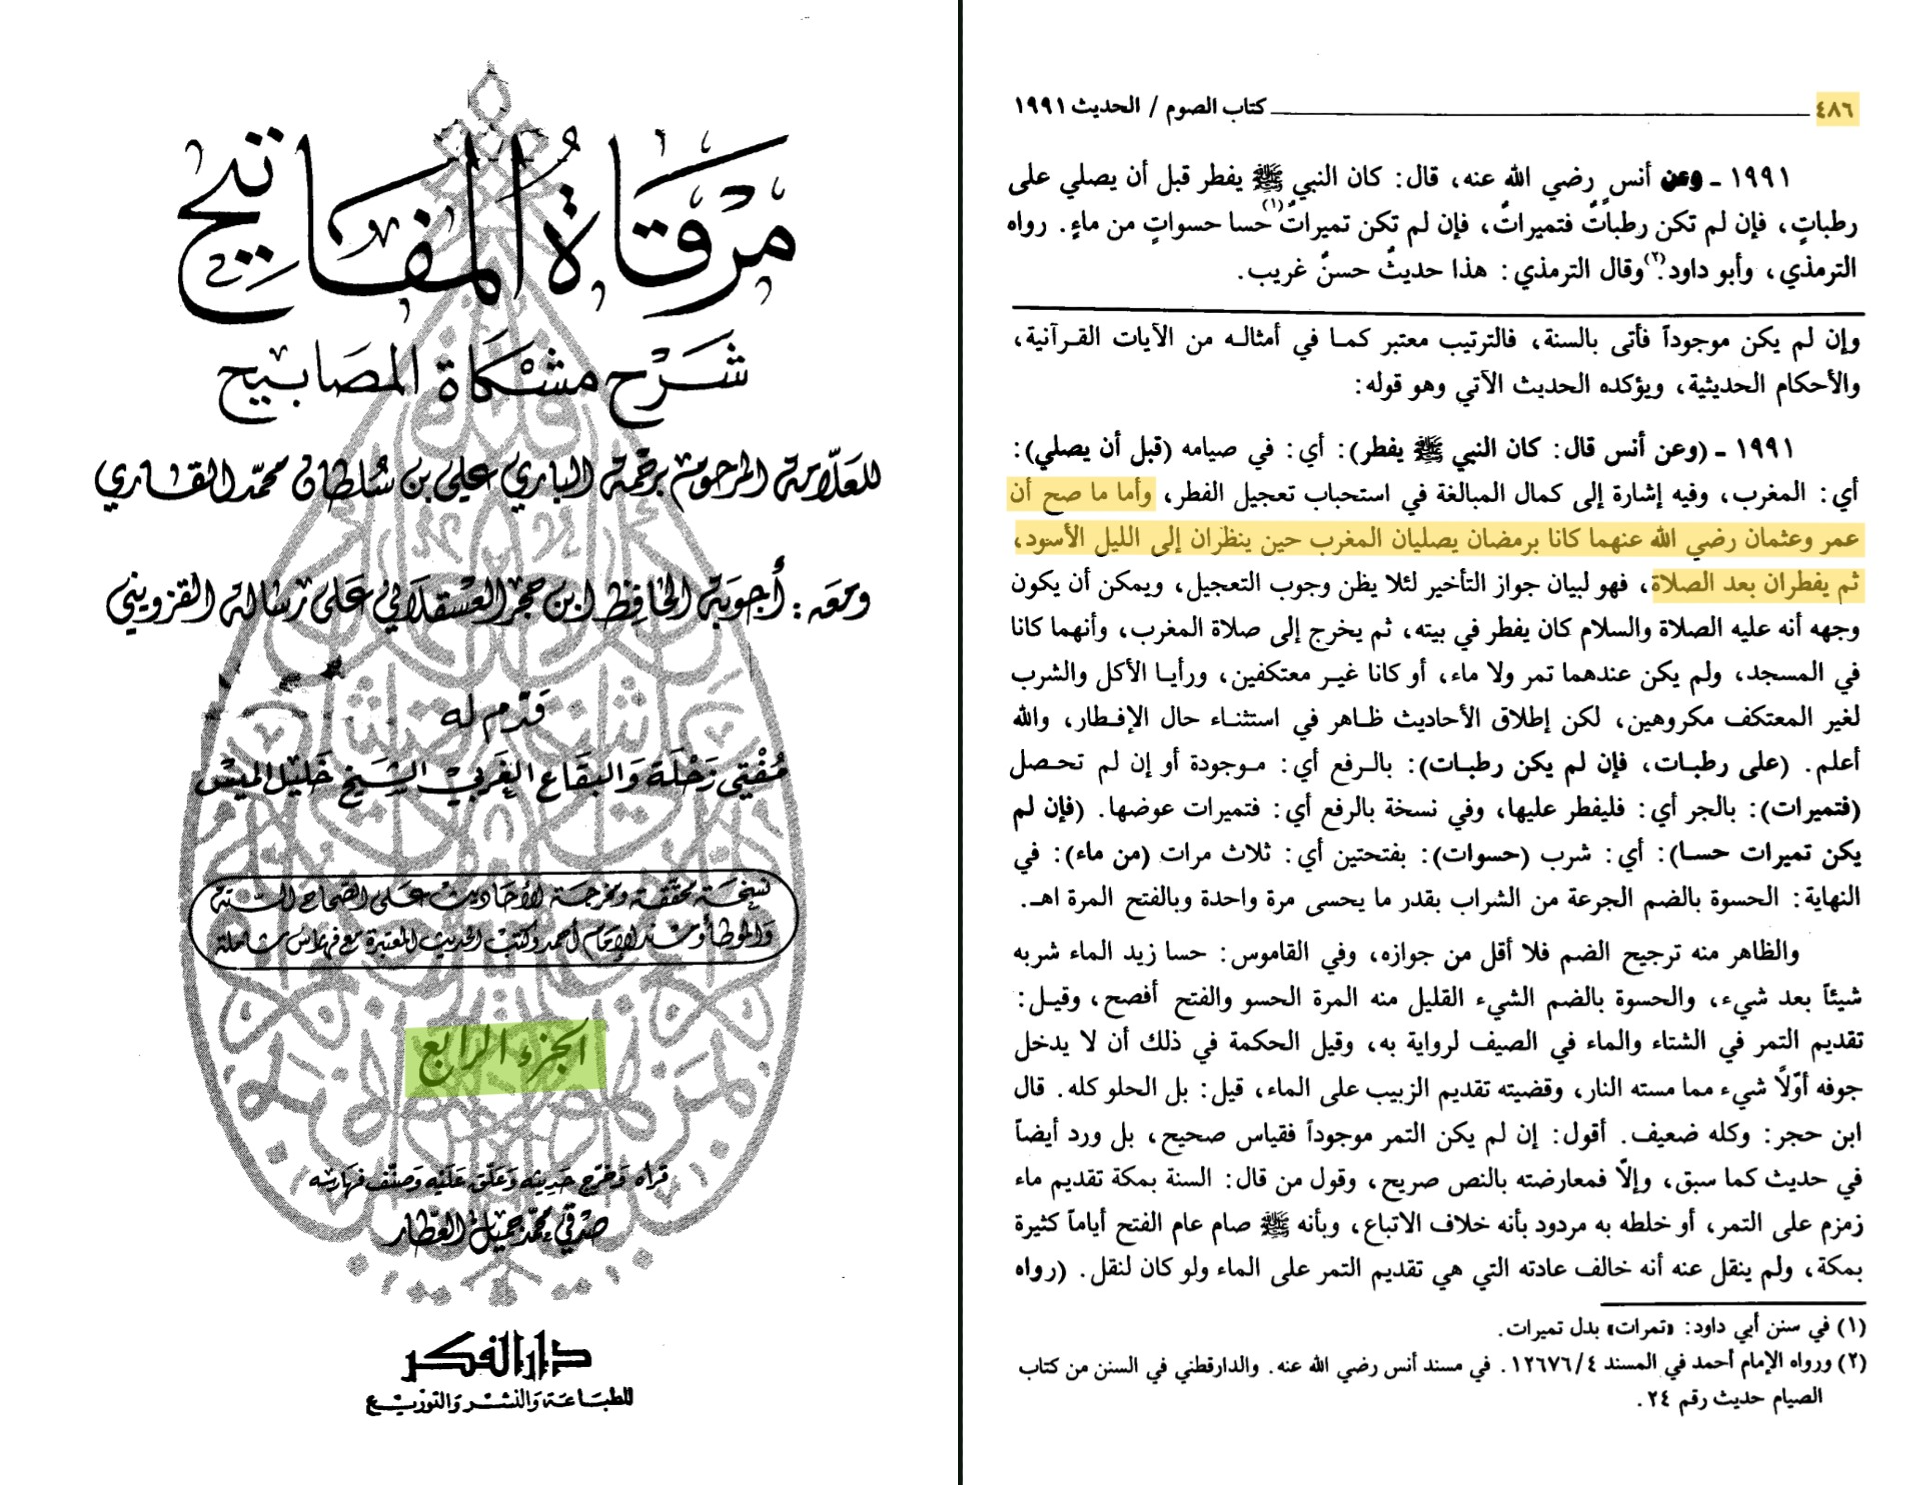 مرقاة المفاتيح
شرح مشكاة المصابيح
للعلامة المرحوم برحمة الباري علي بن سلطان محمد القاري
ومعه : أجوبة الحافظ ابن حجر العسقلاني على رسالة القزويني
قدم له
مفتي زحلة والبقاع الغربي الشيخ خليل الميس
نسخة محققة ومخرجة الأحاديث على الصحاح الستة
والموطأ ومسند الإمام أحمد وكتب الحديث المعتبرة مع فهارس شاملة
الجزء الرابع
قرأه وخرج حديثه وعلق عليه وصنف فهارسه
صدقي محمد جميل العطار
دار الفكر
للطباعة والنشر والتوزيع
٤٨٦ كتاب الصوم / الحديث ١٩٩١
١٩٩١ - وعن أنس رضي الله عنه، قال: كان النبي ﷺ يفطر قبل أن يصلي على
رطباتٍ، فإن لم تكن رطباتٌ فتميراتٌ، فإن لم تكن تميراتٌ(١) حسا حسواتٍ من ماءٍ. رواه
الترمذي، وأبو داود.(٢) وقال الترمذي: هذا حديثٌ حسنٌ غريب.
وإن لم يكن موجوداً فأتى بالسنة، فالترتيب معتبر كمـا في أمثالـه من الآيات القـرآنية،
والأحكام الحديثية، ويؤكده الحديث الآتي وهو قوله:
١٩٩١ - (وعن أنس قال: كان النبي ﷺ يفطر): أي: في صيامه (قبل أن يصلي):
أي: المغرب، وفيه إشارة إلى كمال المبالغة في استحباب تعجيل الفطر، وأما ما صح أن
عمر وعثمان رضي الله عنهما كانا برمضان يصليان المغرب حين ينظران إلى الليل الأسود،
ثم يفطران بعد الصلاة، فهو لبيان جواز التأخير لئلا يظن وجوب التعجيل، ويمكن أن يكون
وجهه أنه عليه الصلاة والسلام كان يفطر في بيته، ثم يخرج إلى صلاة المغرب، وأنهما كانا
في المسجد، ولم يكن عندهما تمر ولا ماء، أو كانا غيـر معتكفين، ورأيـا الأكل والشرب
لغير المعتكف مكروهين، لكن إطلاق الأحاديث ظـاهر في استثنـاء حال الإفـطار، والله
أعلم. (على رطبـات، فإن لم يكن رطبـات): بالـرفع أي: مـوجودة أو إن لم تحـصل
(فتميرات): بالجر أي: فليفطر عليها، وفي نسخة بالرفع أي: فتميرات عوضها. (فإن لم
يكن تميرات حسـا): أي: شرب (حسوات): بفتحتين أي: ثلاث مرات (من ماء): في
النهاية: الحسوة بالضم الجرعة من الشراب بقدر ما يحسى مرة واحدة وبالفتح المرة اهـ.
والظاهر منه ترجيح الضم فلا أقل من جوازه، وفي القاموس: حسا زيد الماء شربه
شيئاً بعد شيء، والحسوة بالضم الشيء القليل منه المرة الحسو والفتح أفصح، وقيـل:
تقديم التمر في الشتاء والماء في الصيف لرواية به، وقيل الحكمة في ذلك أن لا يدخل
جوفه أوّلاً شيء مما مسته النار، وقضيته تقديم الزبيب على الماء، قيل: بل الحلو كله. قال
ابن حجر: وكله ضعيف. أقول: إن لم يكن التمر موجوداً فقياس صحيح، بل ورد أيضاً
في حديث كما سبق، وإلّا فمعارضته بالنص صريح، وقول من قال: السنة بمكة تقديم ماء
زمزم على التمر، أو خلطه به مردود بأنه خلاف الاتباع، وبأنه ﷺ صام عام الفتح أياماً كثيرة
بمكة، ولم ينقل عنه أنه خالف عادته التي هي تقديم التمر على الماء ولو كان لنقل. (رواه
(١) في سنن أبي داود: «تمرات» بدل تميرات.
(٢) ورواه الإمام أحمد في المسند ١٢٦٧٦/٤. في مسند أنس رضي الله عنه. والدارقطني في السنن من كتاب
الصيام حديث رقم ٢٤.